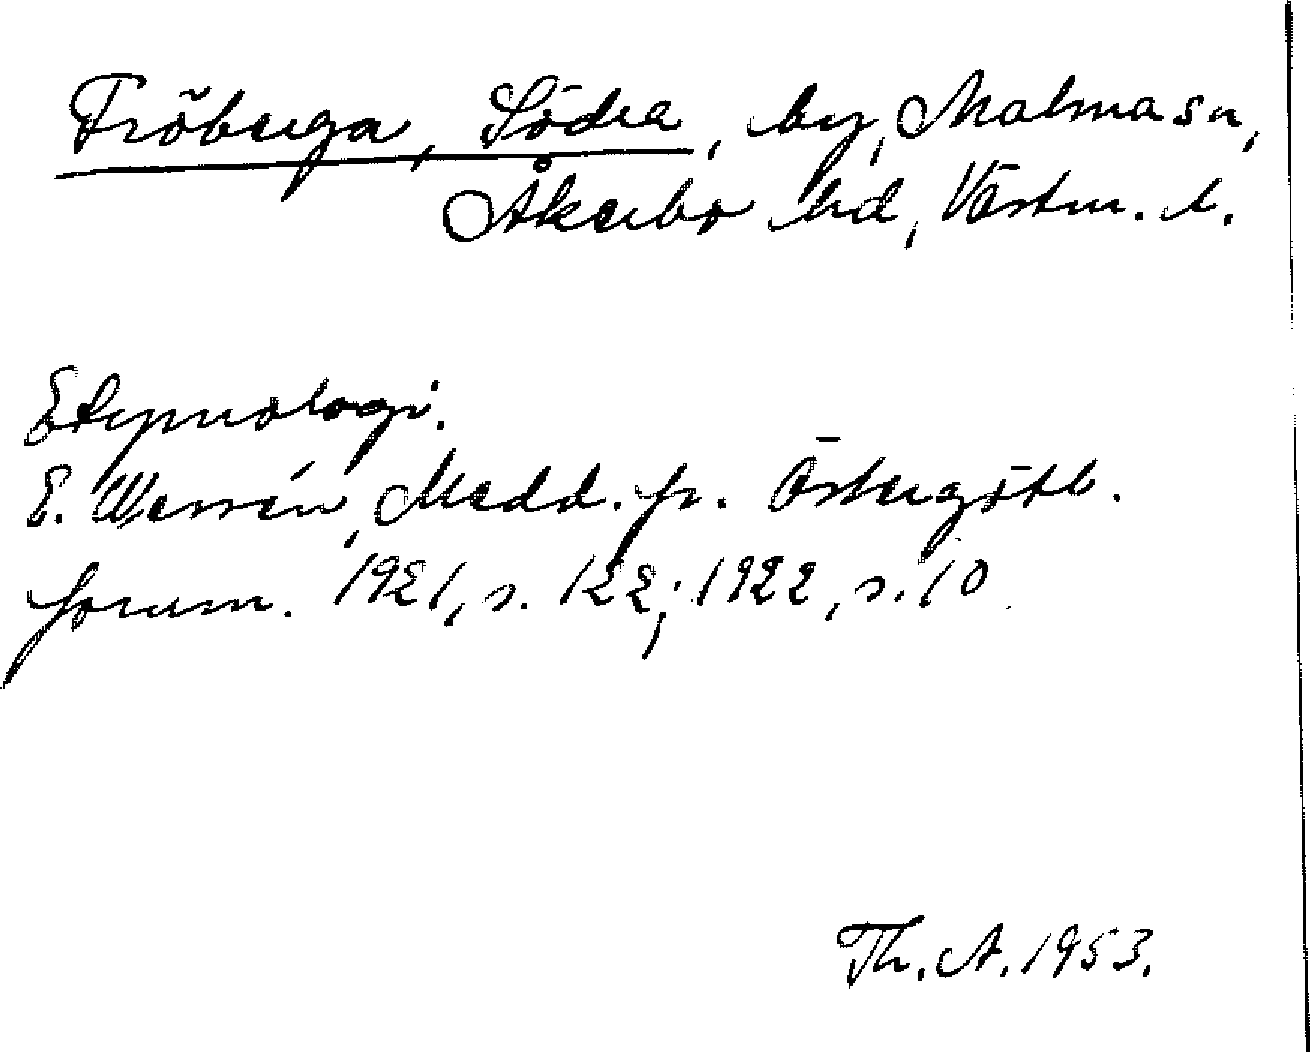 Fröberga, Södra, by, Malma sn,
Åkerbo hd, Västm. l.
Etymologi.
E. Wessén, Medd. fr. Östergötl.
fornm. 1921, s. 122; 1922, s. 10
Th. A. 1953.